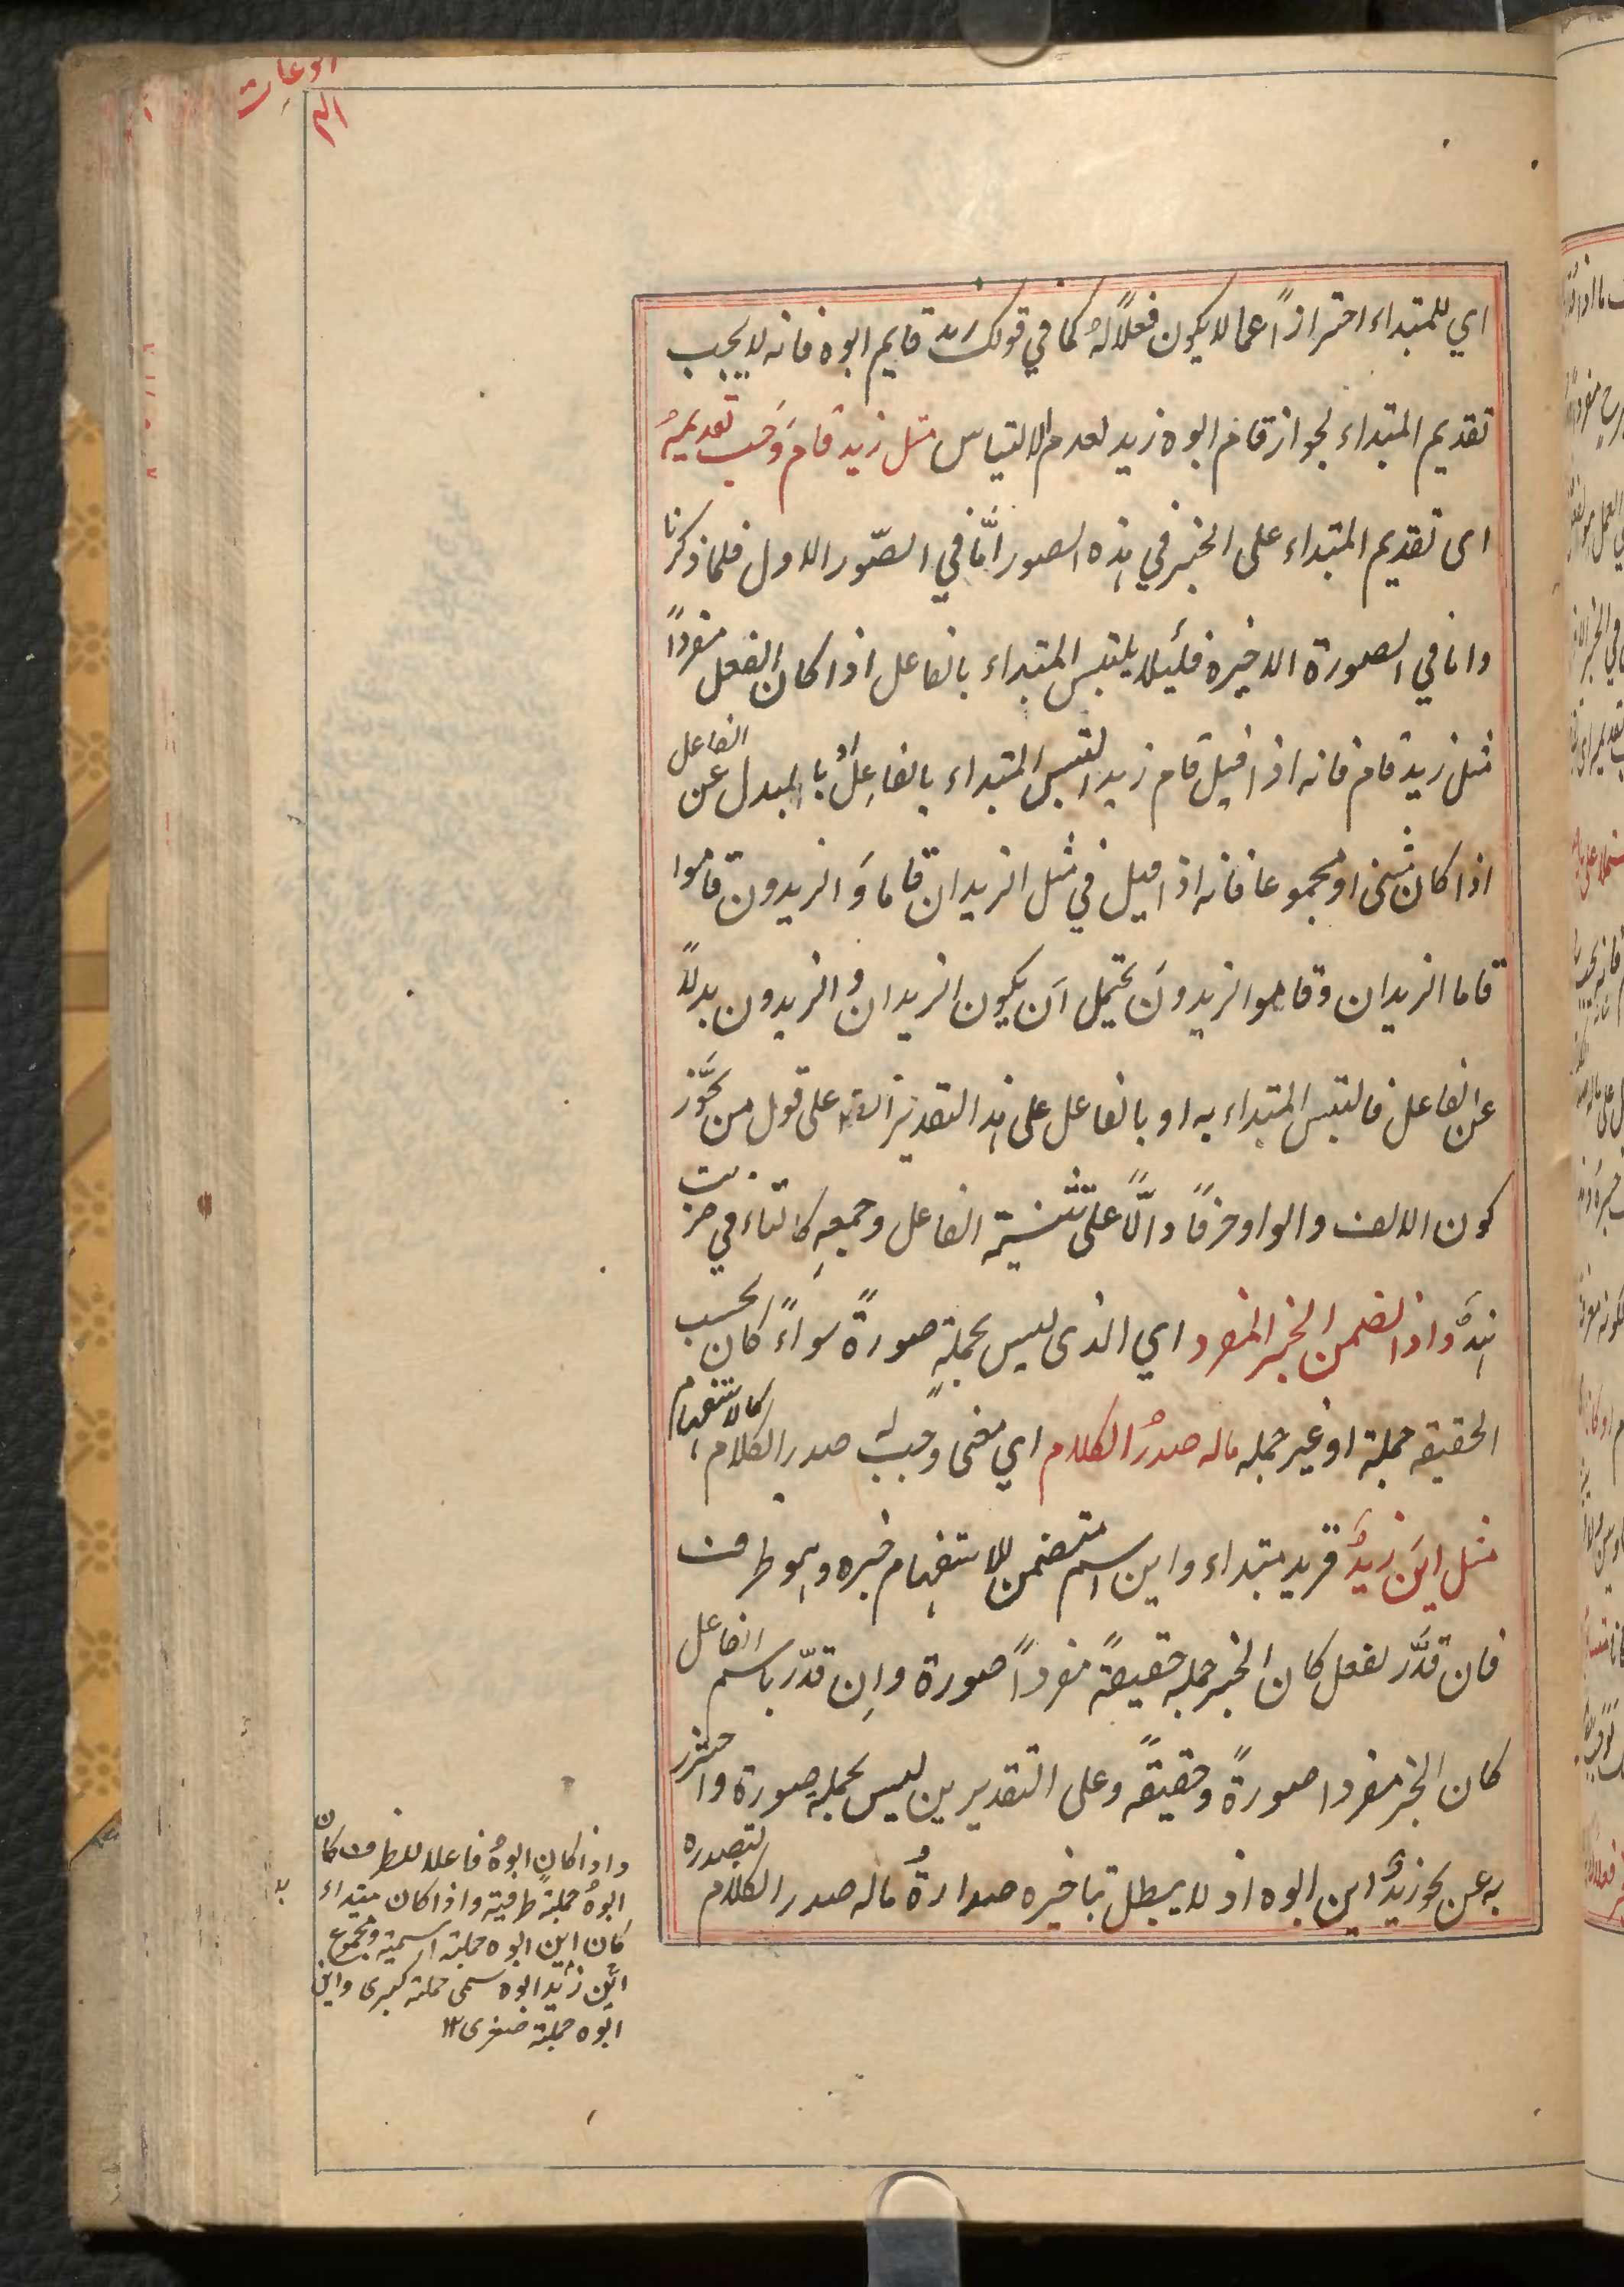 المرفوعات
اي للمبتداء احترازًا عما لا يكون فعلًا له كما في قولك زيد قايم ابوه فانه لا يجب
تقديم المبتداء لجواز قام ابوه زيد لعدم الالتباس مثل زيد قام وَجب تقديمهُ
اى تقديم المبتداء على الخبر في هذه الصور امَّا في الصّور الاول فلما ذكرنا
واما في الصورة الاخيرة فلئيلا يلتبس المبتداء بالفاعل اذا كان الفعل مفردًا
مثل زيد قام فانه اذا قيل قام زيد التبس المبتداء بالفاعِل او بالبدل عن الفاعل
اذا كان مثنى او مجموعا فانه اذا قيل في مثل الزيدان قاما وَالزيدون قاموا
قاما الزيدان وقاموا الزيدونَ يحتمل اَن يكون الزيدان والزيدون بدلًا
عن الفاعل فالتبس المبتداء به او بالفاعل على هذا التقدير ايضًا على قول من يجَوّز
كون الالف والواو حرفًا دالًّا على تثنية الفاعل وجمعِهِ كالتاء في ضربت
هندٌ واذا تضمن الخبر المفرد اي الذى ليس بجملةٍ صورةً سواءً كان بحسب
الحقيقه جملة او غير جمله ماله صدرُ الكلام اي معنى وجب له صدر الكلام كالاستفهام
مثل اينَ زيدٌ فزيد مبتداء واين اسم متضمن للاستفهام خبره وهو ظرف
فان قدَّر بفعل كان الخبر جمله حقيقةً مفردًا صورة واِن قدّر باسم الفاعل
كان الخبر مفردا صورةً وحقيقةً وعلى التقديرين ليس بجمله صورة واحترز
به عن نحو زيدٌ اين ابوه اذ لا يبطل بتاخيره صدارةُ ماله صدر الكلام لتصدره
واذا كان ابوهُ فاعلا للظرف كان
ابوهُ جملةً ظرفية واذا كان مبتداء
كان اين ابوه جملة اسمية ومجموع
اين زيد ابوه يسمى جملة كبرى واين
ابوه جملة صغرى ١٢